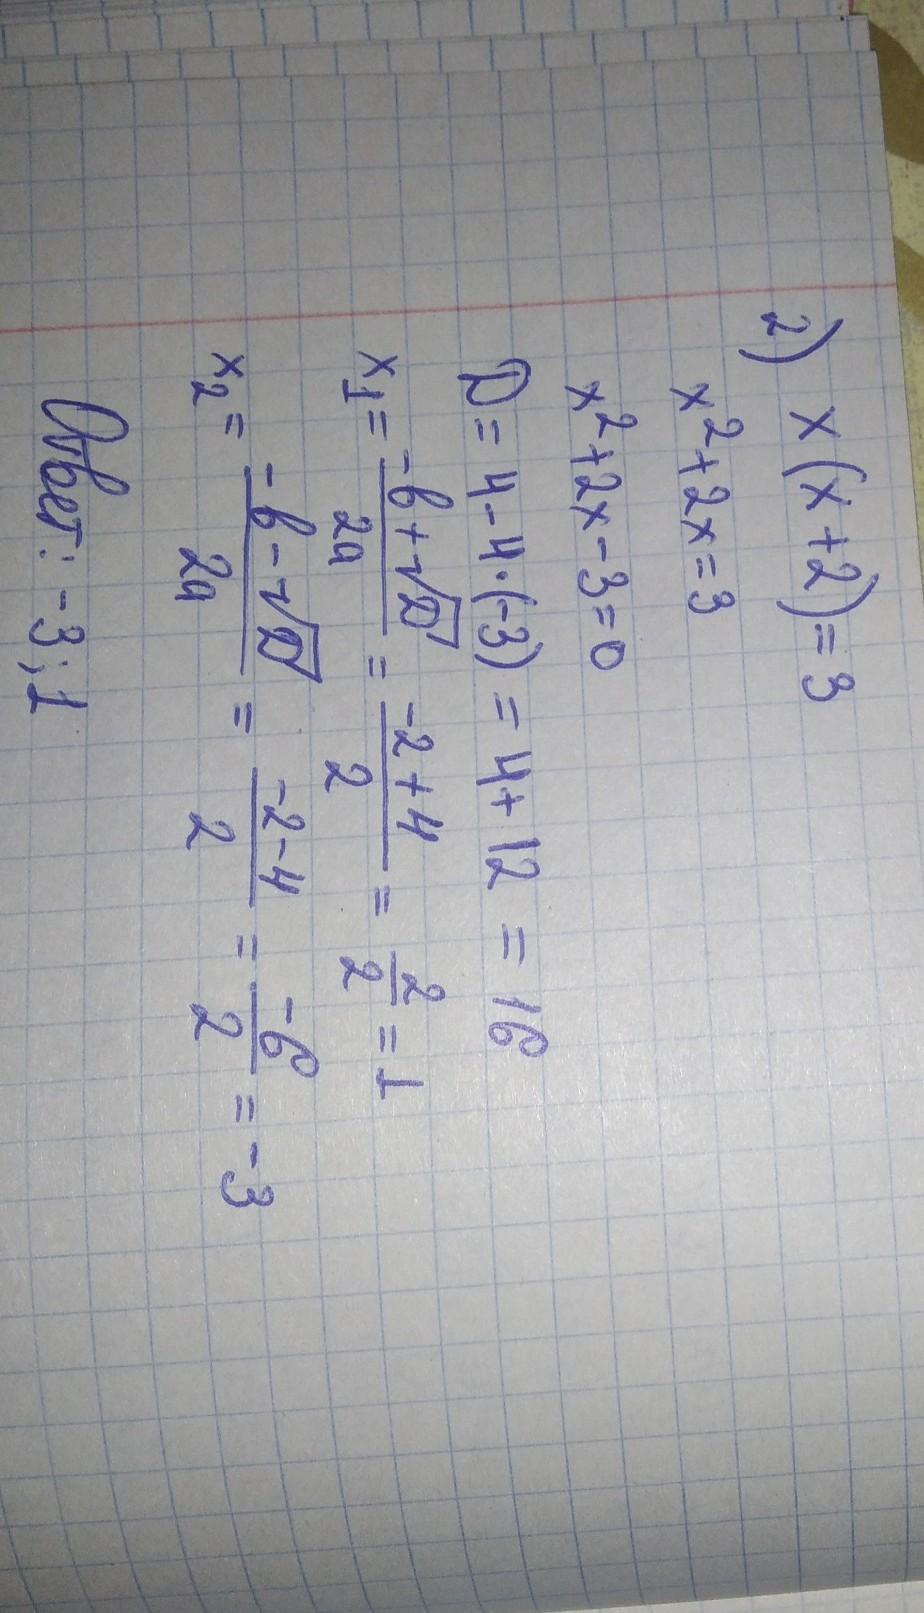 2) x(x+2)=3
x²+2x=3
x²+2x-3=0
D=4-4·(-3)=4+12=16
x₁=(-b+√D)/2a=(-2+4)/2=2/2=1
x₂=(-b-√D)/2a=(-2-4)/2=-6/2=-3
Ответ: -3; 1